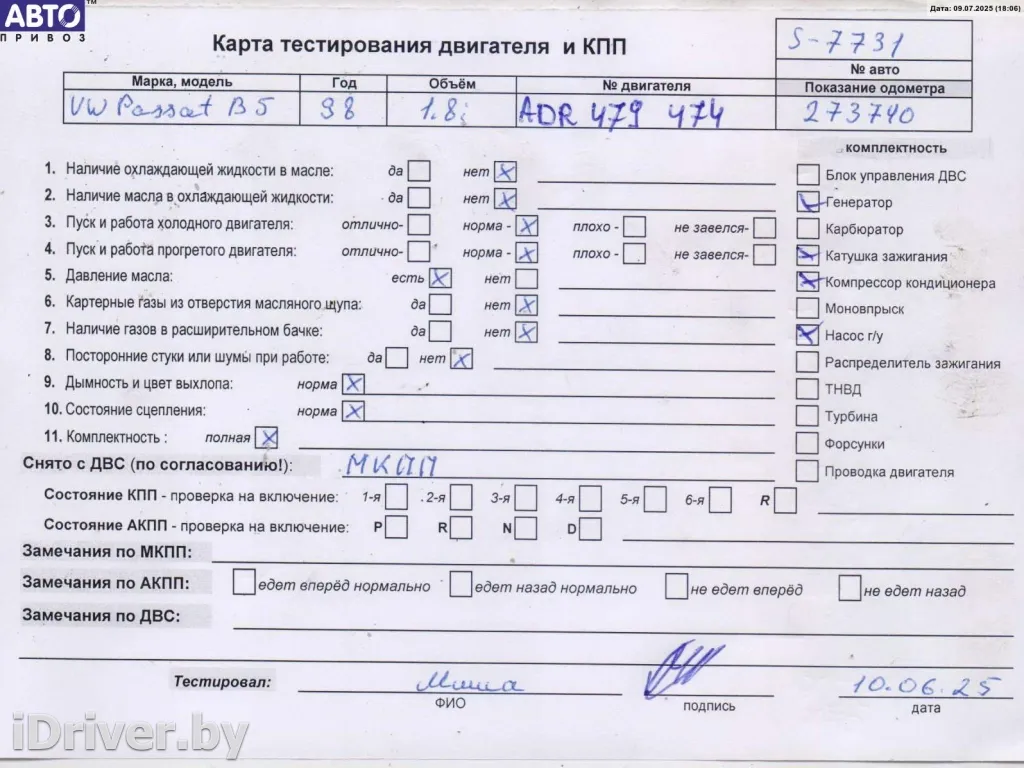 Дата: 09.07.2025 (18:06)
АВТО ™
ПРИВОЗ
Карта тестирования двигателя и КПП
S-7731
№ авто
Марка, модель Год Объём № двигателя Показание одометра
VW Passat B5 98 1.8i ADR 479 474 273740
комплектность
1. Наличие охлаждающей жидкости в масле: да нет X
Блок управления ДВС
2. Наличие масла в охлаждающей жидкости: да нет X
Генератор
3. Пуск и работа холодного двигателя: отлично- норма - X плохо - не завелся-
Карбюратор
4. Пуск и работа прогретого двигателя: отлично- норма - X плохо - не завелся-
X Катушка зажигания
5. Давление масла: есть X нет
X Компрессор кондиционера
6. Картерные газы из отверстия масляного щупа: да нет X
Моновпрыск
7. Наличие газов в расширительном бачке: да нет X
X Насос г/у
8. Посторонние стуки или шумы при работе: да нет X
Распределитель зажигания
9. Дымность и цвет выхлопа: норма X
ТНВД
10. Состояние сцепления: норма X
Турбина
11. Комплектность : полная X
Форсунки
Снято с ДВС (по согласованию!): МКПП
Проводка двигателя
Состояние КПП - проверка на включение: 1-я 2-я 3-я 4-я 5-я 6-я R
Состояние АКПП - проверка на включение: P R N D
Замечания по МКПП:
Замечания по АКПП: едет вперёд нормально едет назад нормально не едет вперёд не едет назад
Замечания по ДВС:
Тестировал: Миша 10.06.25
ФИО подпись дата
iDriver.by